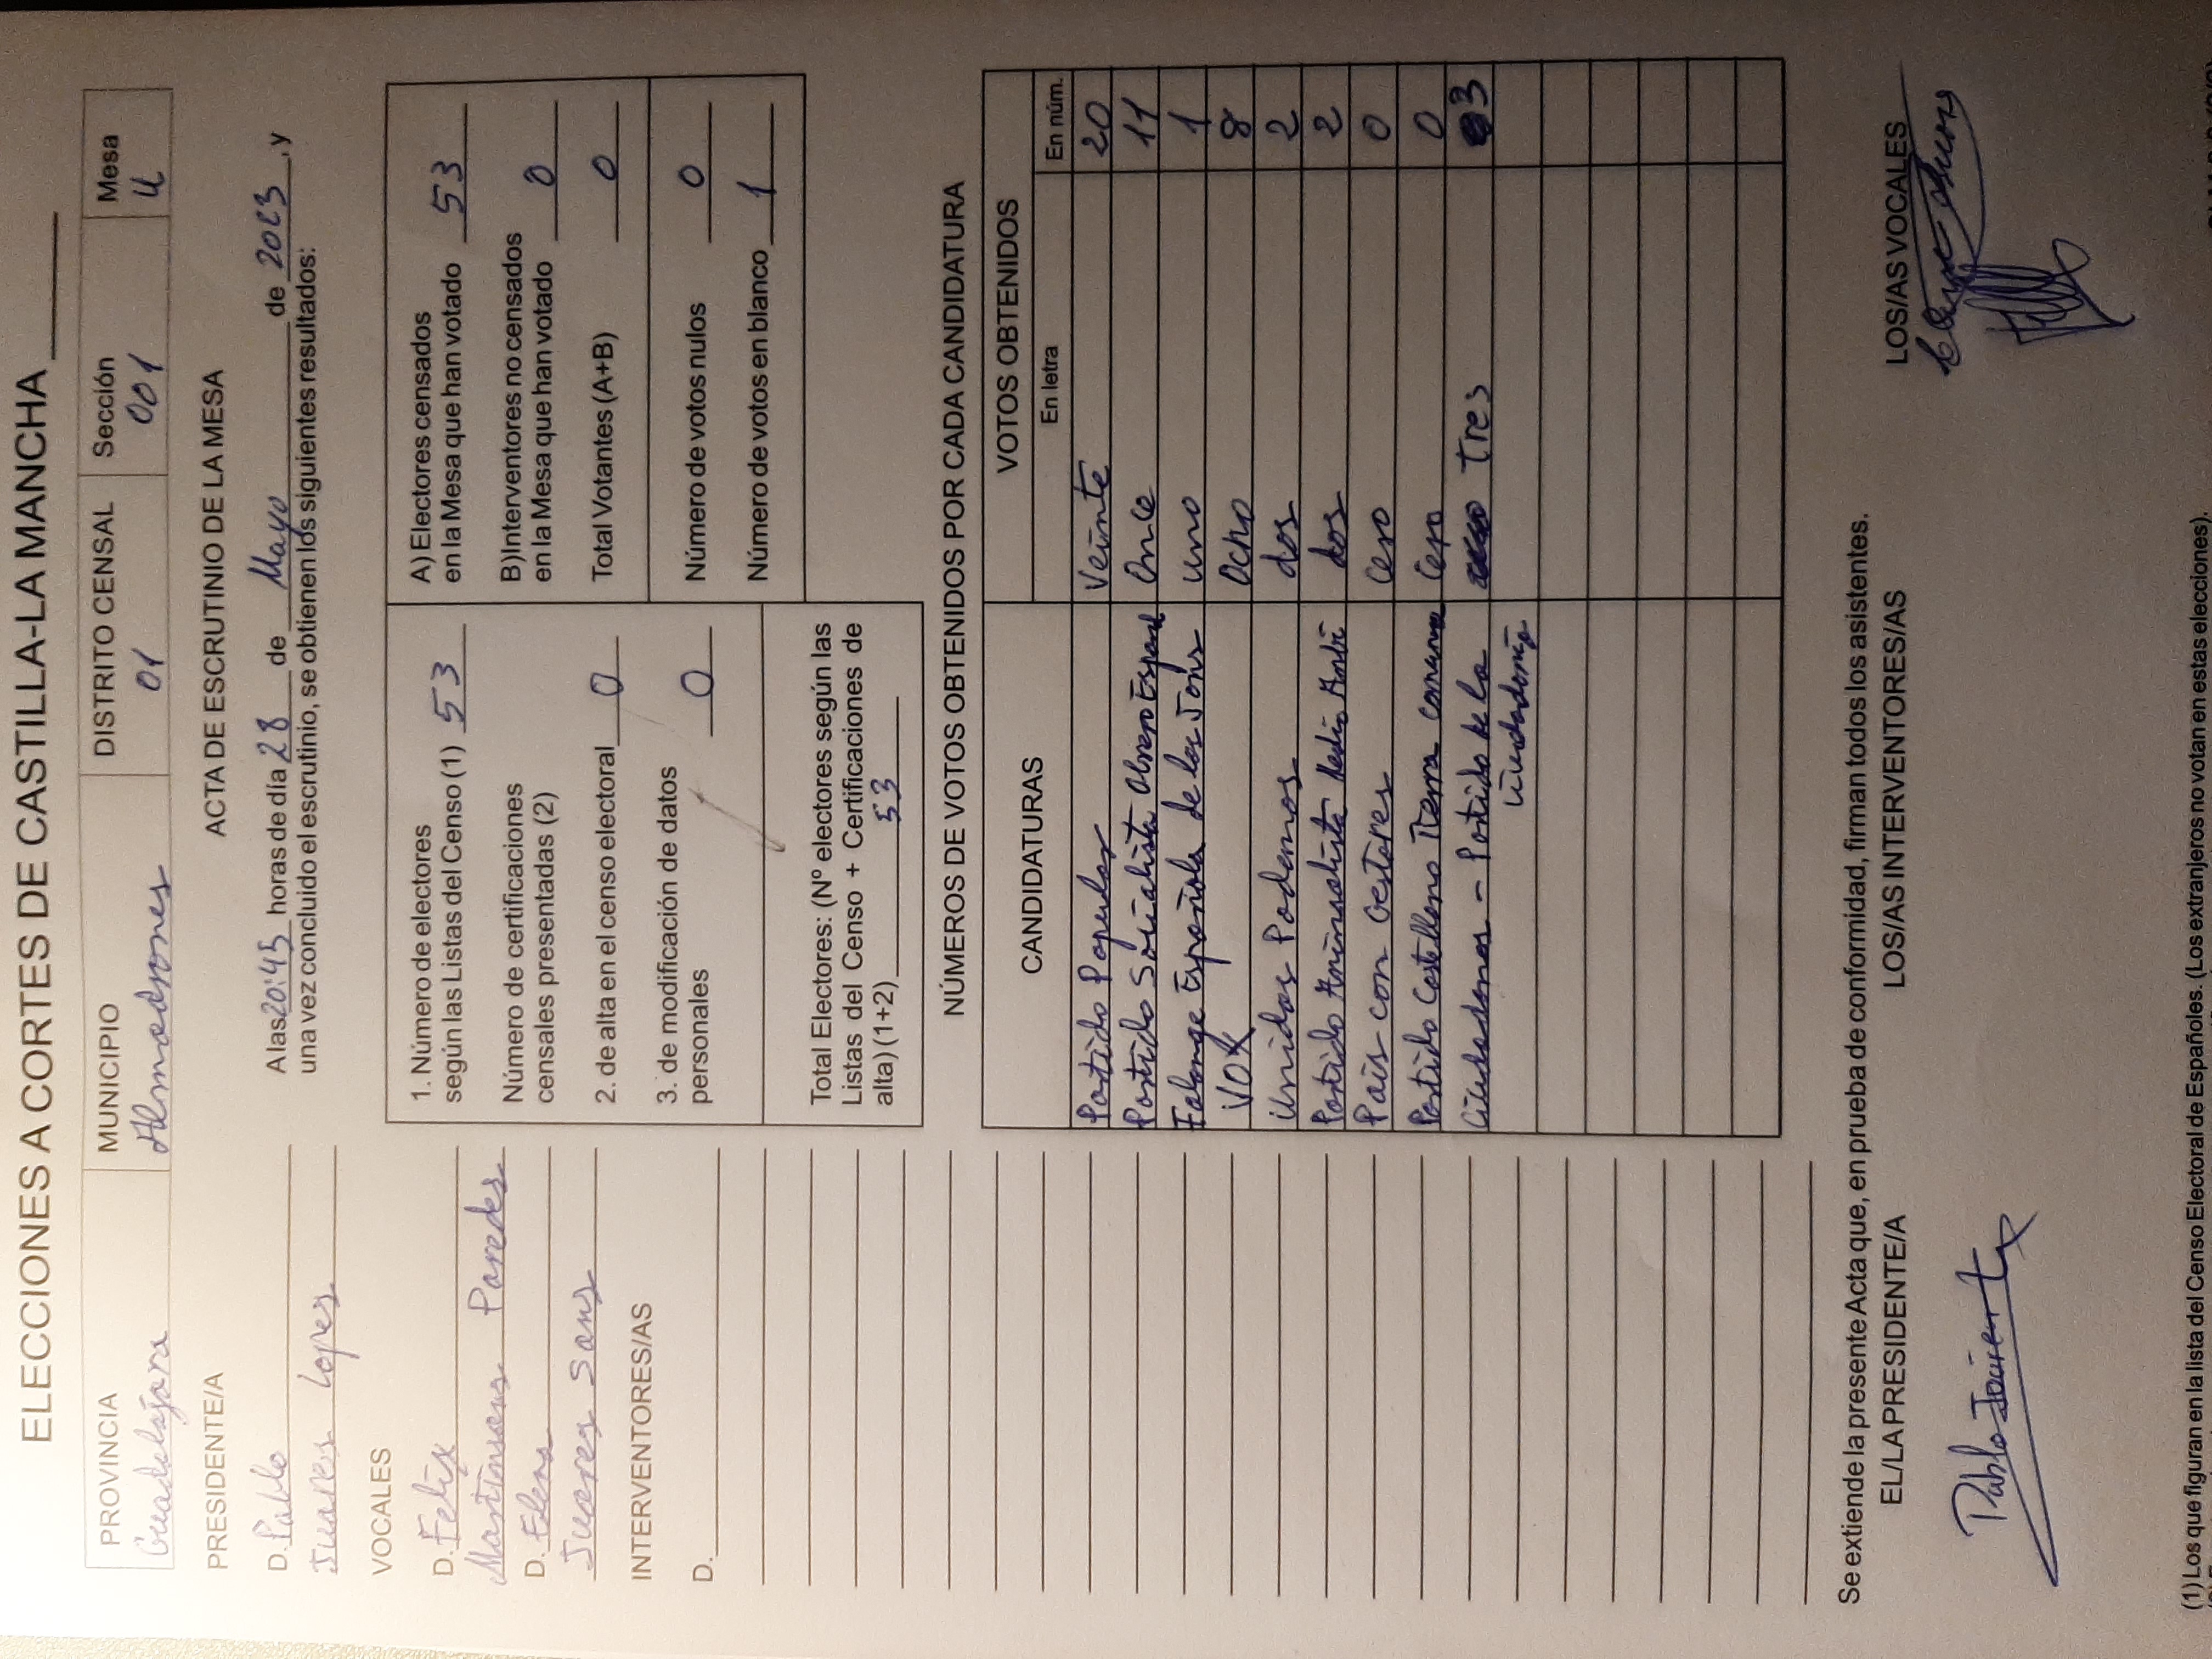 ELECCIONES A CORTES DE CASTILLA-LA MANCHA
PROVINCIA MUNICIPIO DISTRITO CENSAL Sección Mesa
Guadalajara Almadrones 01 001 U
PRESIDENTE/A
D. Pablo
Juanes Lopez
VOCALES
D. Felix
Paredes
D. Elena
Sanz
INTERVENTORES/AS
D.
ACTA DE ESCRUTINIO DE LA MESA
A las 20:45 horas de día 28 de Mayo de 2023, y
una vez concluido el escrutinio, se obtienen los siguientes resultados:
1. Número de electores
según las Listas del Censo (1) 53
Número de certificaciones
censales presentadas (2)
2. de alta en el censo electoral 0
3. de modificación de datos
personales 0
Total Electores: (Nº electores según las
Listas del Censo + Certificaciones de
alta) (1+2) 53
A) Electores censados
en la Mesa que han votado 53
B)Interventores no censados
en la Mesa que han votado 0
Total Votantes (A+B) 0
Número de votos nulos 0
Número de votos en blanco 1
NÚMEROS DE VOTOS OBTENIDOS POR CADA CANDIDATURA
CANDIDATURAS VOTOS OBTENIDOS
En letra En núm.
Partido Popular Veinte 20
Partido Socialista Obrero Español Once 11
Falange Española de las Jons uno 1
VOX Ocho 8
Unidas Podemos dos 2
Partido Animalista Medio Ambi dos 2
Pais con Gestores Cero 0
Partido Castellano Tierra comunera Cero 0
Ciudadanos - Partido de la Tres 3
ciudadania
Se extiende la presente Acta que, en prueba de conformidad, firman todos los asistentes.
EL/LA PRESIDENTE/A LOS/AS INTERVENTORES/AS LOS/AS VOCALES
(1) Los que figuran en la lista del Censo Electoral de Españoles. (Los extranjeros no votan en estas elecciones).